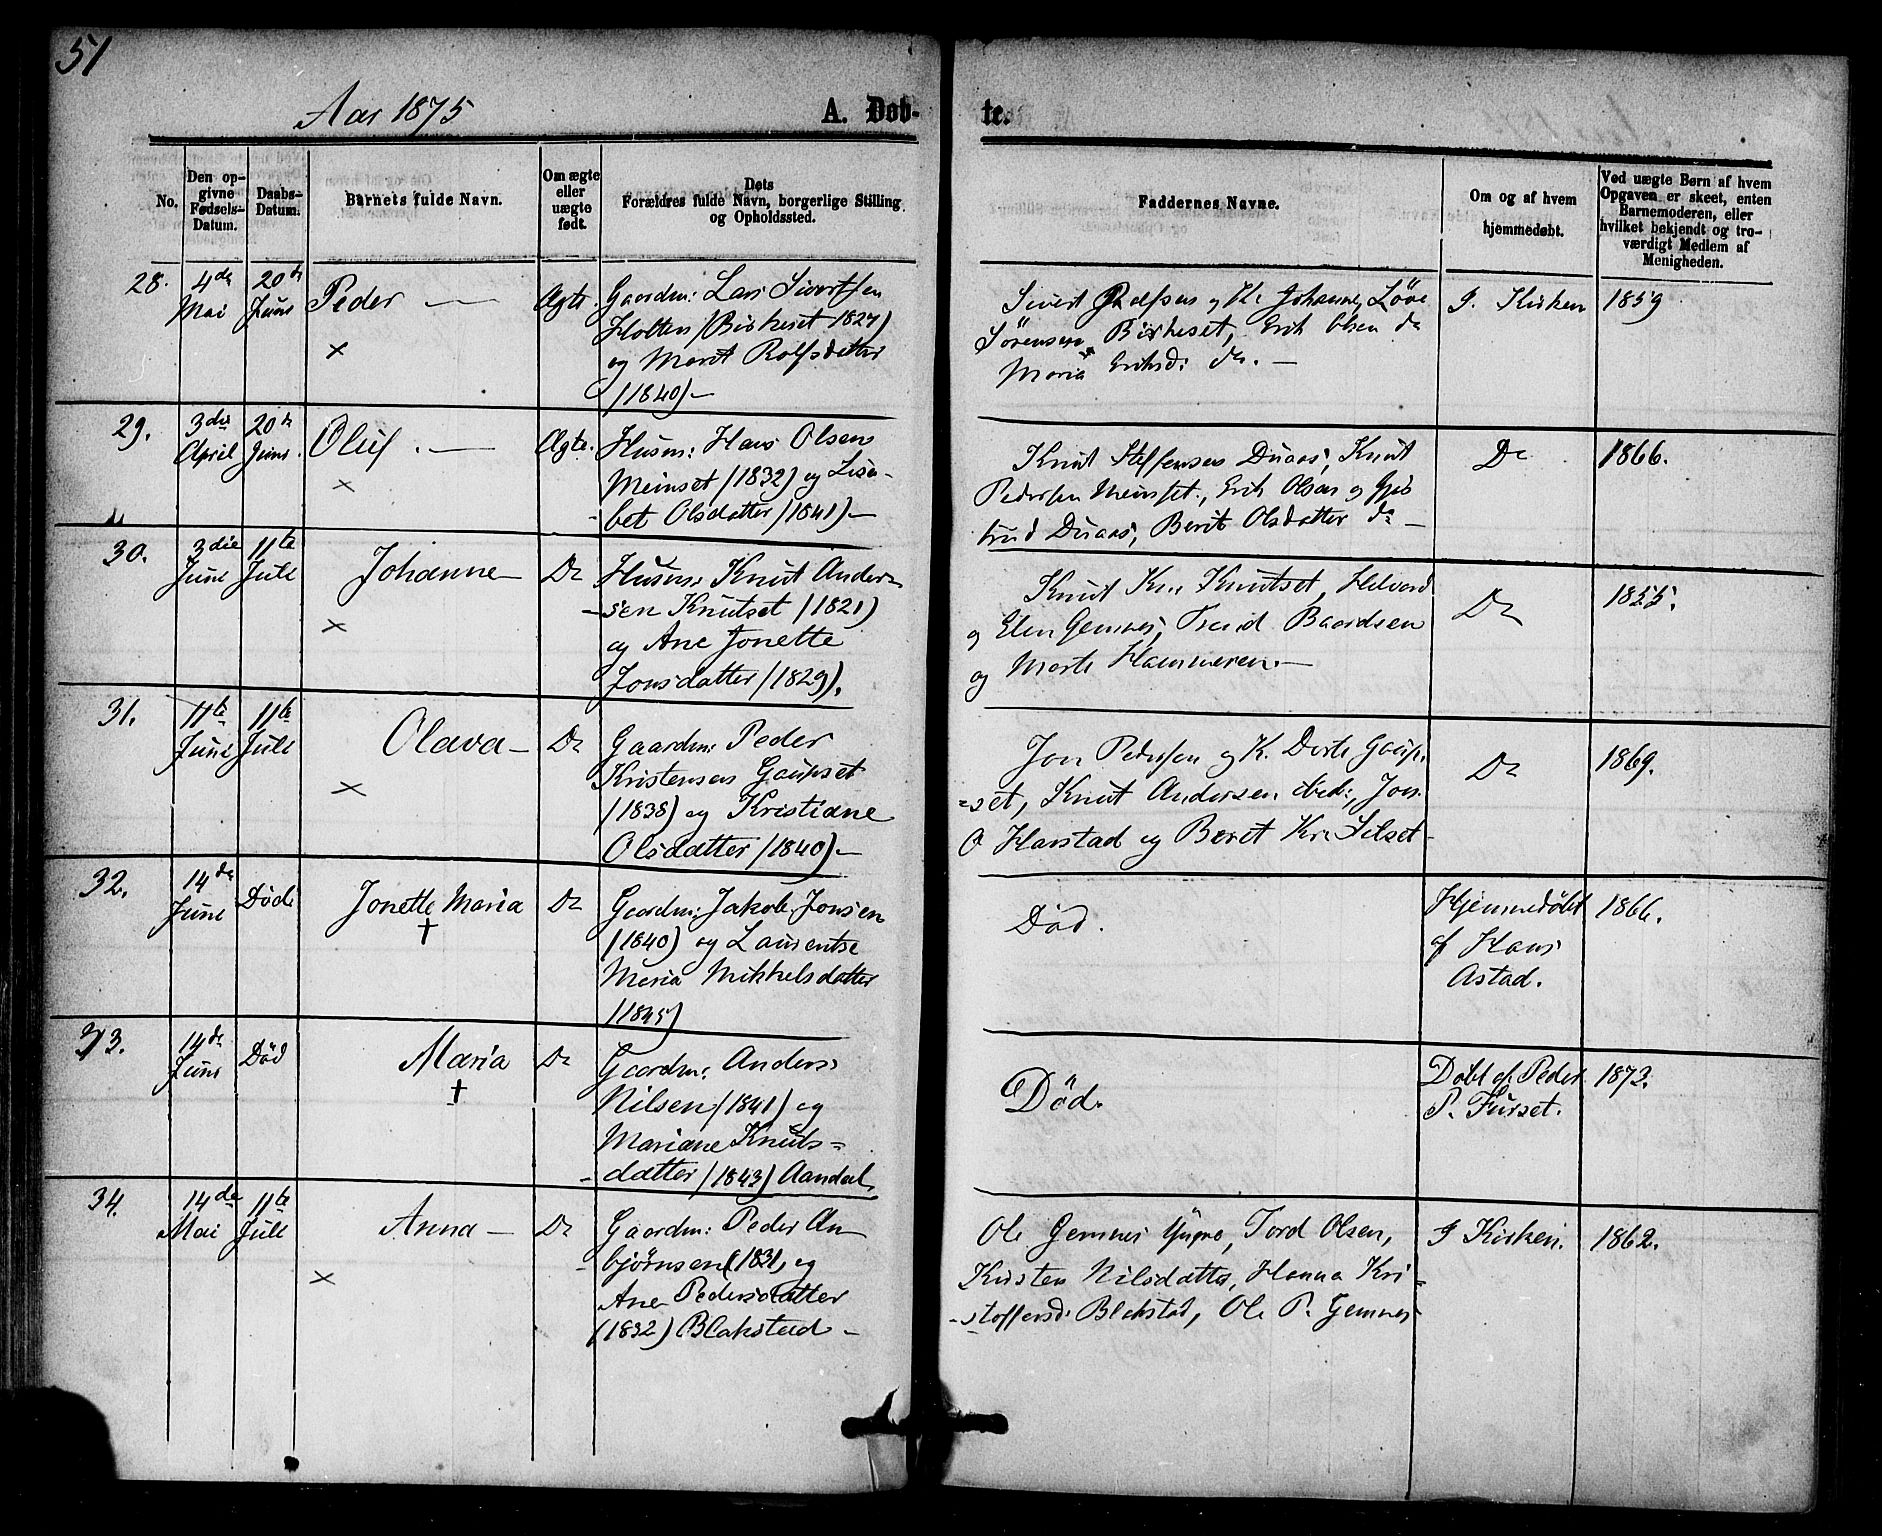 51
Aar 1875
A. Døb-
te.
No.
Den op-
givne
Fødsels-
Datum.
Daabs-
Datum.
Barnets fulde Navn.
Om ægte
eller
uægte
født.
Dets
Forældres fulde Navn, borgerlige Stilling
og Opholdssted.
Faddernes Navne.
Om og af hvem
hjemmedøbt.
Ved uægte Børn af hvem
Opgaven er skeet, enten
Barnemoderen, eller
hvilket bekjendt og tro-
værdigt Medlem af
Menigheden.
28.
4de
Mai
20de
Juni
Peder —
×
Ægte.
Gaardm: Lars Sivertsen
Holten/Birkeset 1827)
og Marit Rolfsdatter
(1840) —
Sivert Rolfsen og Johanne Løve
Sørensen Birkeset, Erik Olsen do
Maria Eriksd: do. —
I. Kirken
1859
29.
3die
April
20de
Juni.
Oluf. —
×
Ægte.
Husm: Hans Olsen
Meinset (1832) og Lisa-
- bet Olsdatter (1841) —
Knut Steffensen Duaas, Knut
Pedersen Meinset., Erik Olsen og Gje
trud Duaas, Berit Olsdatter do —
Do
1866.
30.
3die
Juni
11te
Juli
Johanne —
×
Do
Husm: Knut Ander-
- sen Knutset (1821)
og Ane Jonette
Jonsdatter (1829).
Knut Kn. Knutset, Halvard
og Elen Gemnes, Trond Baardsen
og Marte Hammeren. —
Do
1855.
31.
11te
Juni
11te
Juli
Olava —
×
Do
Gaardm: Peder
Kristensen Gaupset
(1838) og Kristiane
Olsdatter (1840) —
Jon Pedersen og K. Dorte Gaup.
=set, Knut Andersen ibid:, Jon
O Harstad og Beret Kr. Silset —
Do
1869.
32.
14de
Juni
Død:
Jonette Maria
†
Do
Gaardm: Jakob Jonsen
(1840) og Laurentse
Maria Mikkelsdatter
(1845)
Død.
Hjemmedøbt
af Hans
Astad.
1866.
33.
14de
Juni
Død
Maria
†
Do
Gaardm: Anders
Nilsen (1841) og
Mariane Knuts=
- datter (1843) Aandal.
Død.
Døbt af Peder
P. Furset.
1872.
34.
14de
Mai
11te
Juli
Anna —
×
Do
Gaardm: Peder An
- bjørnsen (1831, og
Ane Pedersdatter
(1832) Blakstad —
Ole Gemnes Yngre, Tord Olsen,
Kirsten Nilsdatter, Hanna Kri-
- stoffersd: Blakstad, Ole P. Gemnes
I Kirken.
1862.